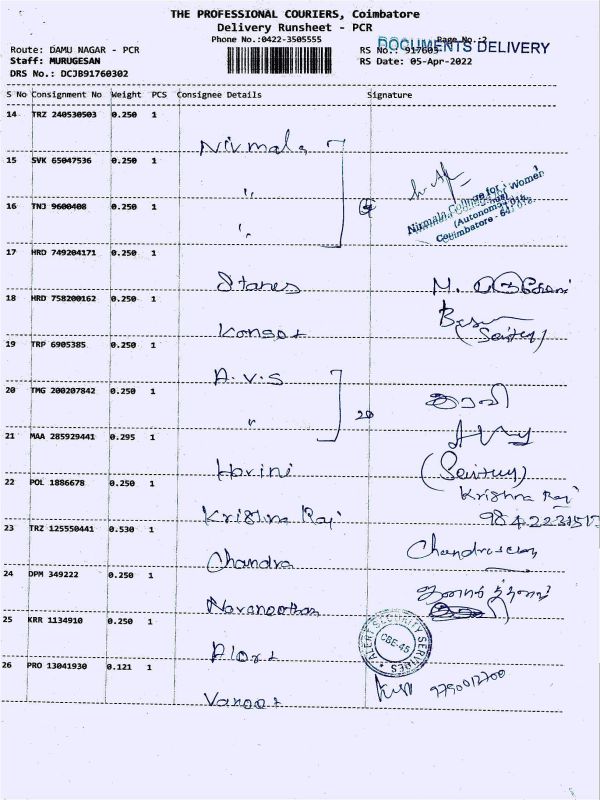 THE PROFESSIONAL COURIERS, Coimbatore
Delivery Runsheet - PCR
Phone No.:0422-3505555
Page No.:2
DOCUMENTS DELIVERY
Route: DAMU NAGAR - PCR
RS No.: 917605
Staff: MURUGESAN
RS Date: 05-Apr-2022
DRS No.: DCJB91760302
S No Consignment No Weight PCS Consignee Details Signature
14 TRZ 240530503 0.250 1
Nirmala
15 SVK 65047536 0.250 1
"
Nirmala College for Women
(Autonomous)
Coimbatore - 641 018.
16 TNJ 9600408 0.250 1
"
17 HRD 749204171 0.250 1
Stanes M.
18 HRD 758200162 0.250 1
19 TRP 6905385 0.250 1
A.V.S
20 TMG 200207842 0.250 1
" 20
21 MAA 285929441 0.295 1
Harini
22 POL 1886678 0.250 1
Krishna Raj
Krishna Raj
23 TRZ 125550441 0.530 1
Chandra
24 DPM 349222 0.250 1
25 KRR 1134910 0.250 1
ALERT SECURITY SERVICES
CBE-45
26 PRO 13041930 0.121 1